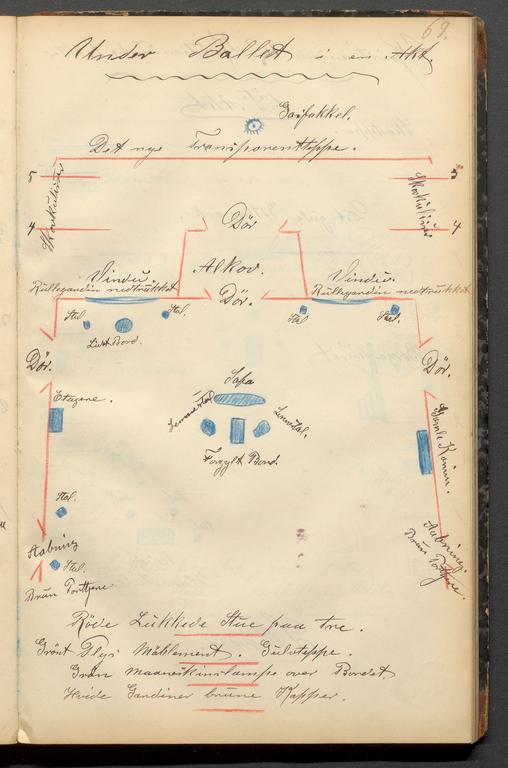 69.
Under Ballet i en Akt.
Gasfakkel.
Det nye Transparentteppe.
5
5
Skovkulisser
Skovkulisser
4
4
Dör
Alkov.
Vindu.
Vindu.
Rullegardin nedtrukket
Rullegardin nedtrukket
Dör.
Stol
Stol.
Stol
Stol.
Lidet Bord.
Dör.
Dör.
Sofa
Etagere.
Lænestol
Lænestol.
Forgylt Bord.
Gamle Kamin.
Stol.
Aabning
Stol.
Brun Porttiere
Aabning.
Brun Porttiere.
Röde Lukkede Stue paa tre.
Grönt Plys Möblement. Gulvteppe.
Grön maaneskinslampe over Bordet
Hvide Gardiner brune Kapper.